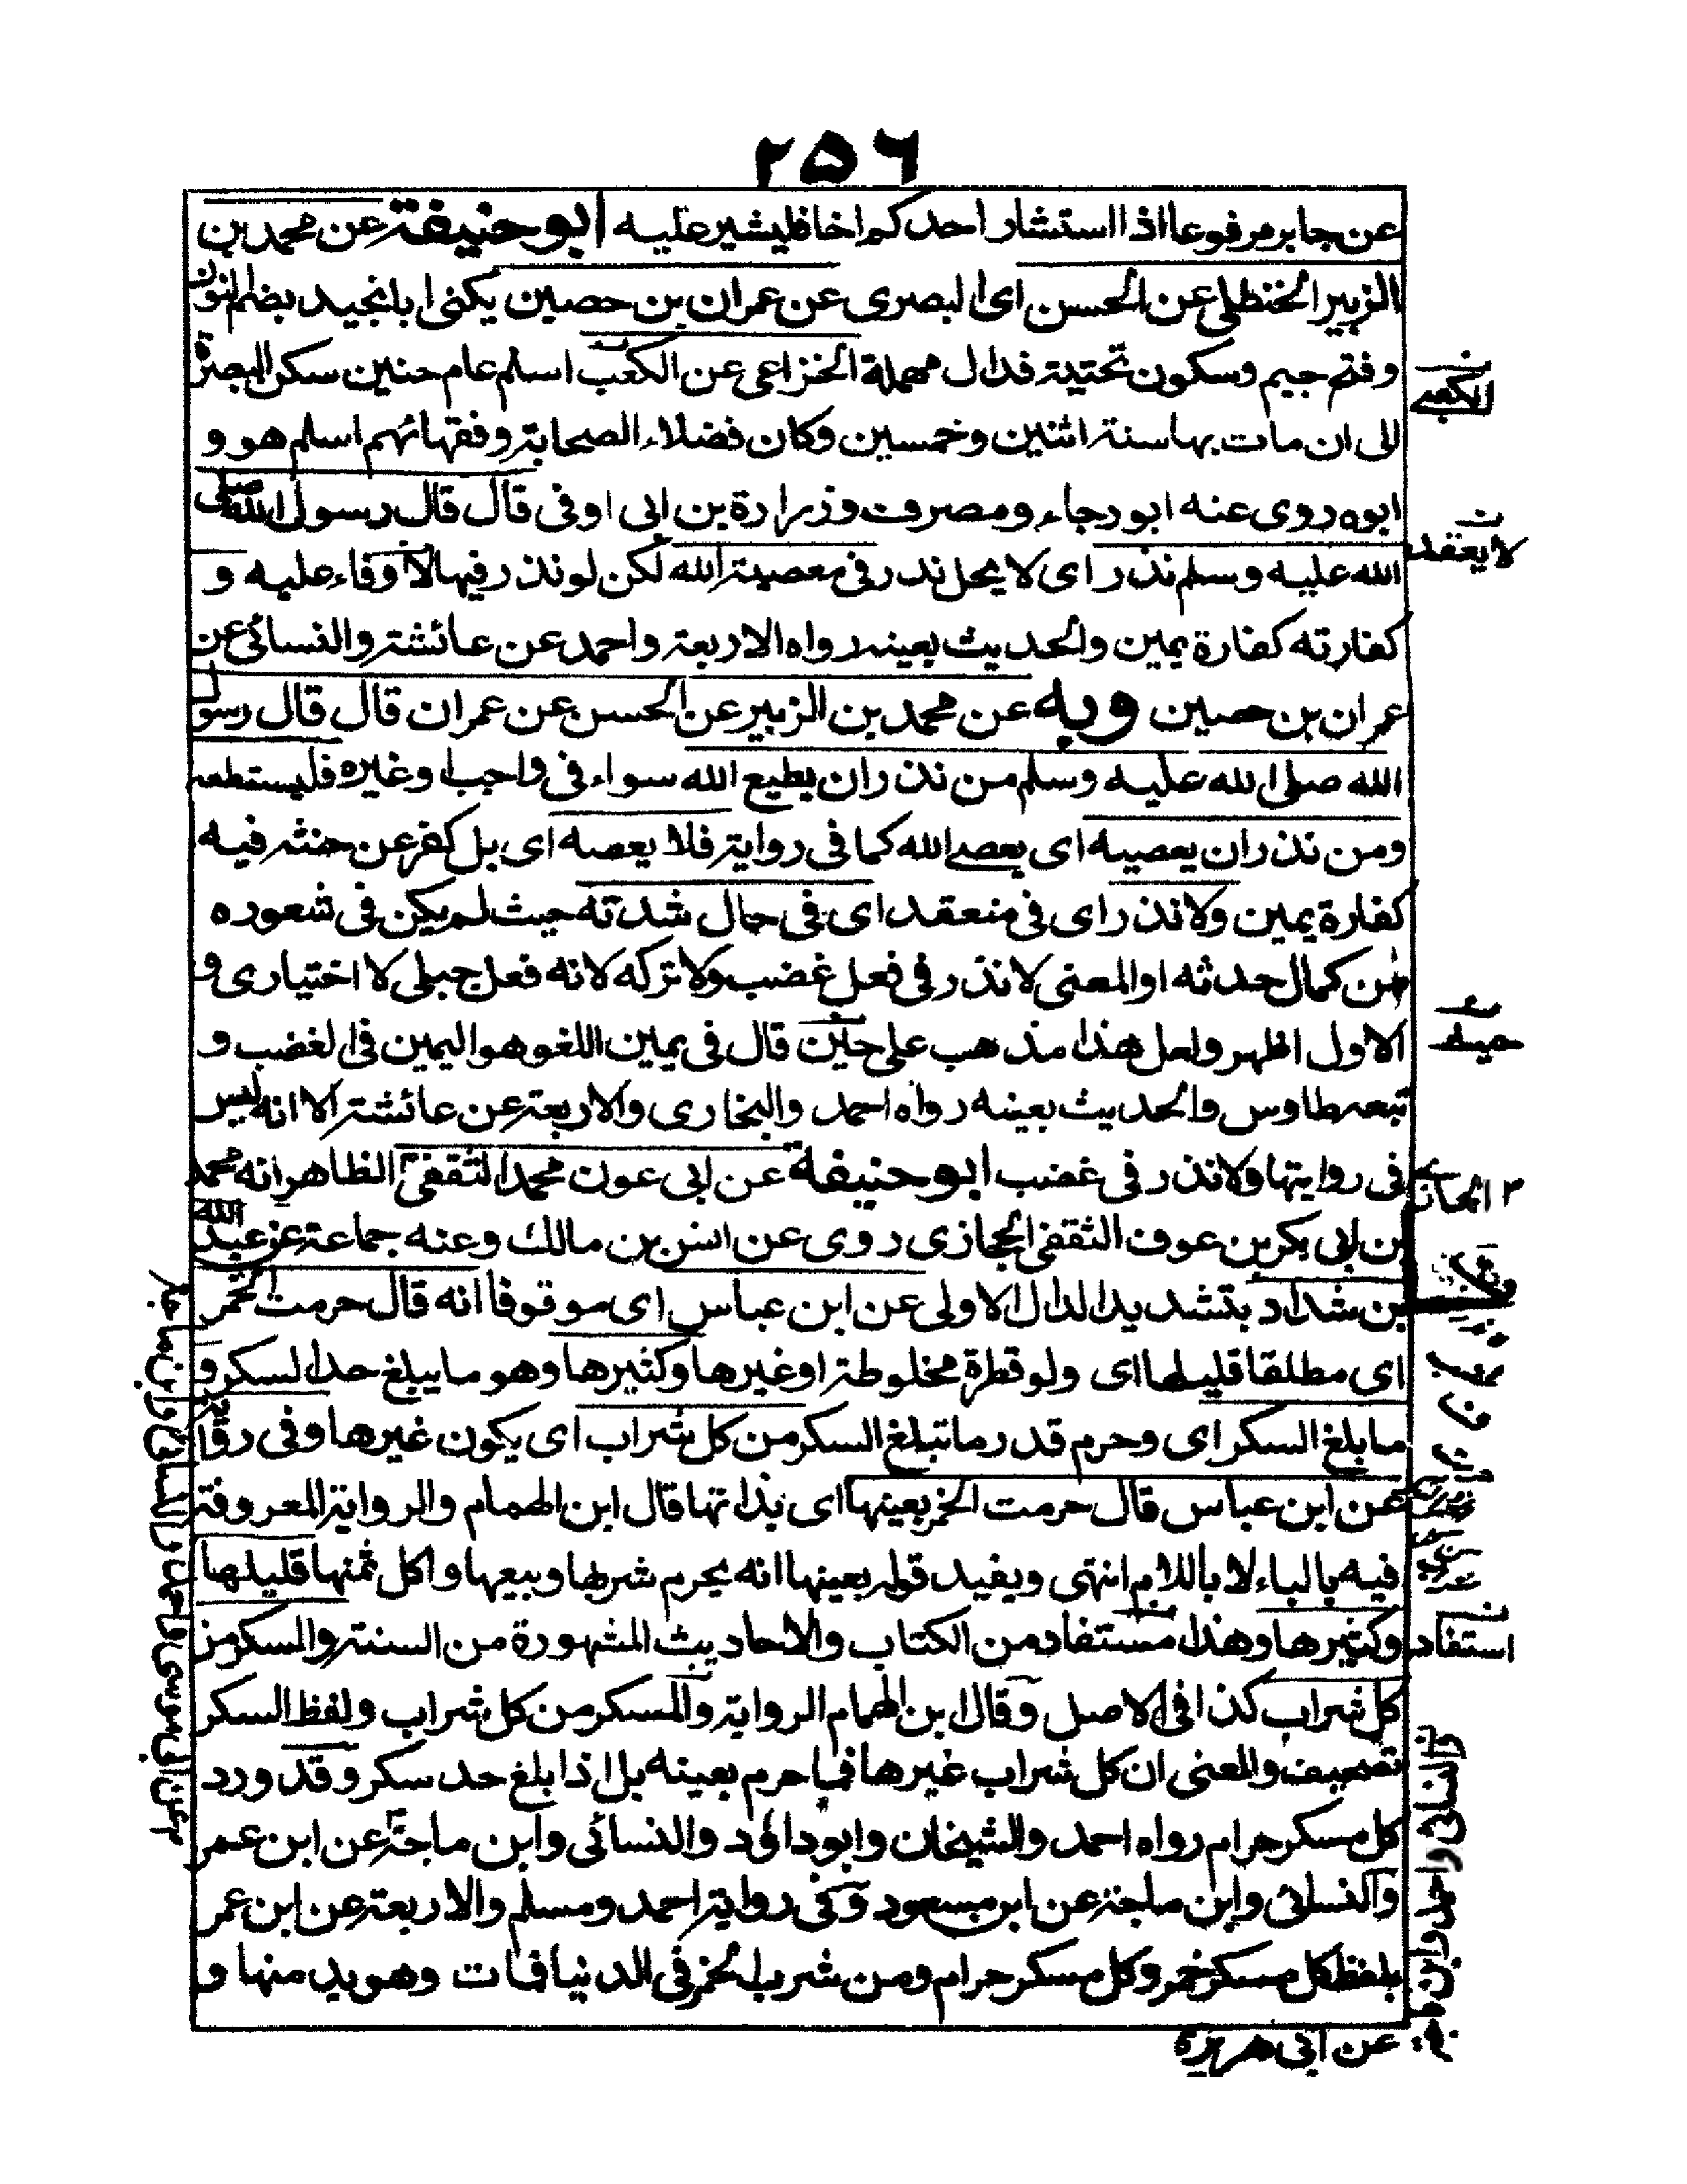 ٢٥٦
عن جابر مرفوعا اذا استشار احدكم اخا فليشير عليه ابو حنيفة عن محمد بن
الزبير الحنظلى عن الحسن اى البصرى عن عمران بن حصين يكنى ابا نجيد بضم النون
وفتح جيم وسكون تحتية فدال مهملة الخزاعى عن الكعب اسلم عام حنين سكن البصرة
الى ان مات بها سنة اثنين وخمسين وكان فضلاء الصحابة وفقهائهم اسلم هو و
ابوه روى عنه ابو رجاء ومصروف وزرارة بن ابى اوفى قال قال رسول الله صلى
الله عليه وسلم نذر اى لا يحل نذر فى معصية الله لكن لو نذر فيها لا وفاء عليه و
كفارته كفارة يمين والحديث بعينه رواه الاربعة واحمد عن عائشة والنسائى عن
عمران بن حصين وبه عن محمد بن الزبير عن الحسن عن عمران قال قال رسول
الله صلى الله عليه وسلم من نذر ان يطيع الله سواء فى واجب او غيره فليستطعه
ومن نذر ان يعصيه اى يعصى الله كما فى رواية فلا يعصه اى بل كفر عن حنثه فيه
كفارة يمين ولا نذر اى فى منعقد اى فى حال شدته حيث لم يكن فى شعوره
من كمال حدثه او المعنى لا نذر فى فعل غضب ولا تركه لانه فعل جبلى لا اختيارى و
الاول اظهر ولعل هذا مذهب على حين قال فى يمين اللغو هو اليمين فى الغضب و
تبعه طاوس والحديث بعينه رواه احمد والبخارى والاربعة عن عائشة الا انه ليس
فى روايتها ولا نذر فى غضب ابو حنيفة عن ابى عون محمد الثقفى الظاهر انه محمد
بن ابى بكر بن عوف الثقفى الحجازى روى عن انس بن مالك وعنه جماعة عن عبد الله
بن شداد بتشديد الدال الاولى عن ابن عباس اى موقوفا انه قال حرمت الخمر
اى مطلقا قليلها اى ولو قطرة مخلوطة او غيرها وكثيرها وهو ما يبلغ حد السكر و
ما بلغ السكر اى وحرم قدر ما تبلغ السكر من كل شراب اى يكون غيرها وفى رواية
عن ابن عباس قال حرمت الخمر بعينها اى بذاتها قال ابن الهمام والرواية المعروفة
فيه بالباء لا باللام انتهى ويفيد قوله بعينها انه يحرم شربها وبيعها واكل ثمنها قليلها
وكثيرها وهذا مستفاد من الكتاب والاحاديث المشهورة من السنة والسكر من
كل شراب كذا فى الاصل وقال ابن الهمام الرواية والمسكر من كل شراب ولفظ السكر
تصحيف والمعنى ان كل شراب غيرها فما حرم بعينه بل اذا بلغ حد سكر وقد ورد
كل مسكر حرام رواه احمد والشيخان وابو داؤد والنسائى وابن ماجة عن ابن عمر
والنسائى وابن ماجة عن ابن مسعود وفى رواية احمد ومسلم والاربعة عن ابن عمر
بلفظ كل مسكر خمر وكل مسكر حرام ومن شرب الخمر فى الدنيا فمات وهو يدمنها و
عن ابى هريرة
الكعبى
لا يعقد
استفاد
والنسائى واحمد وابن ماجة
عن ابى موسى واحمد والنسائى وابن ماجة